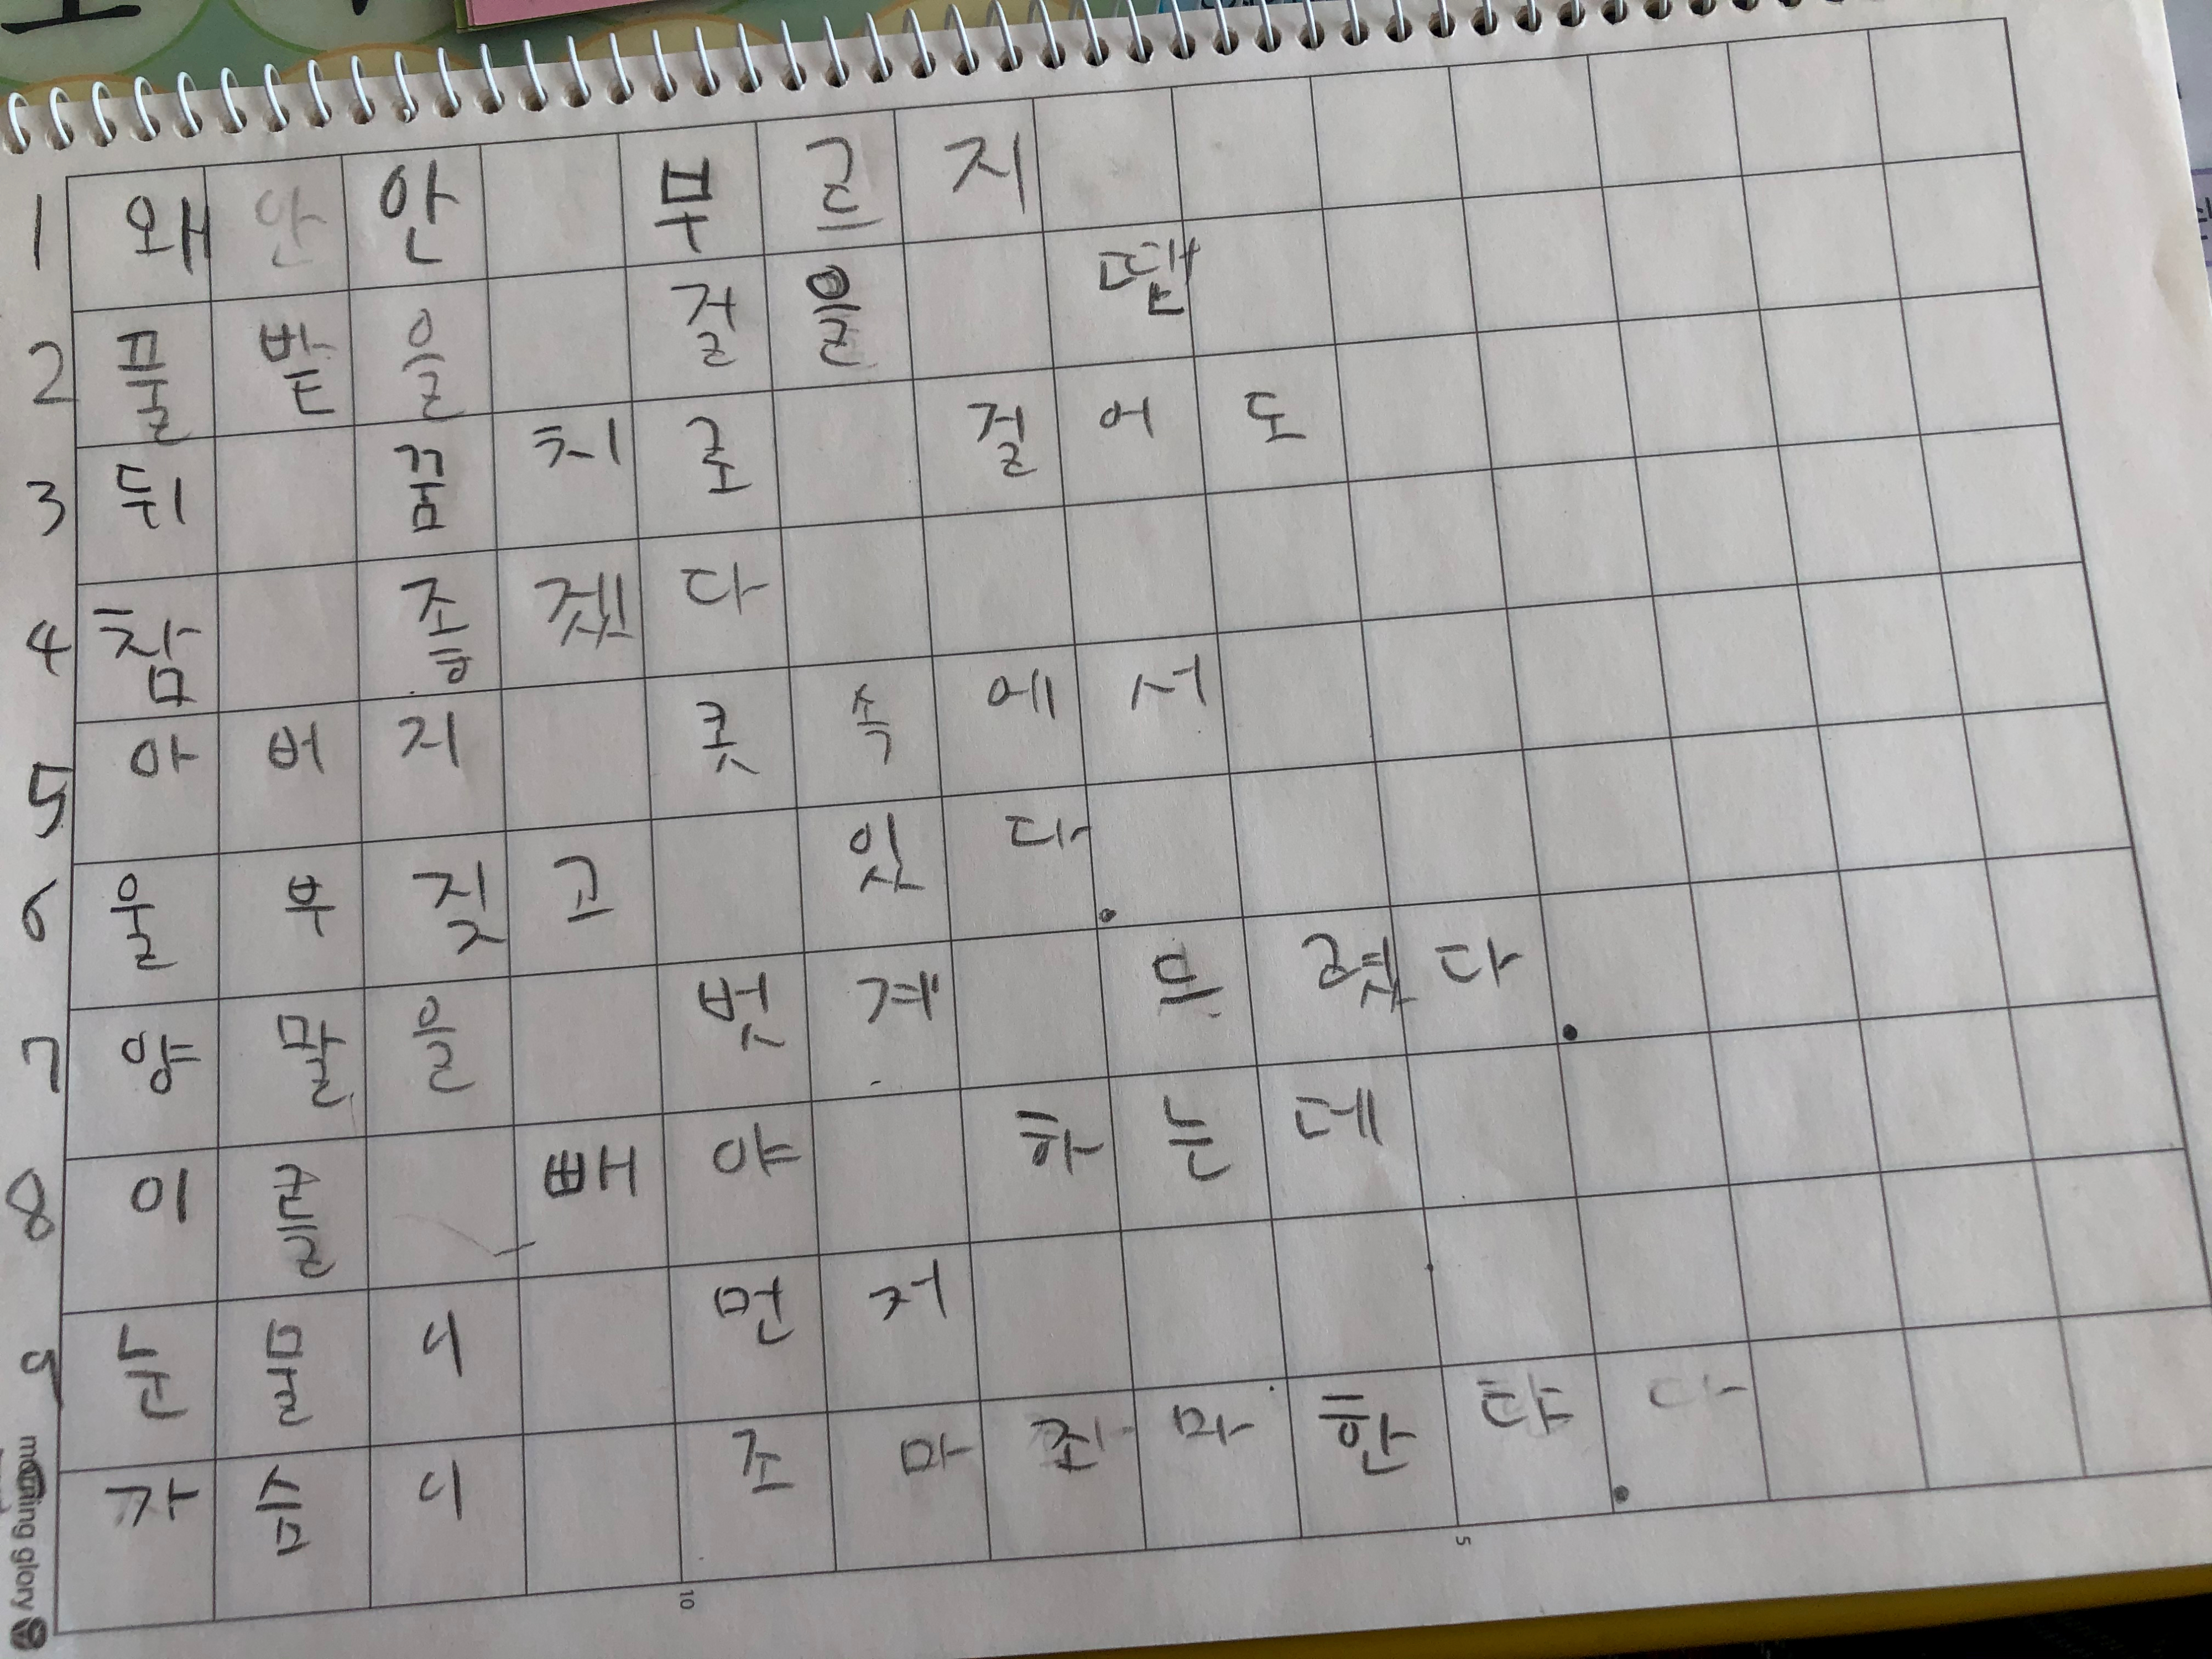 1 왜 안 안 부르지
2 풀밭을 걸을 땝
3 뒤 꿈치로 걸어도
4 참 조흫겠다
5 아버지 콧속에서
6 울부짖고 있다.
7 양말을 벗계 드렸다.
8 이를 빼야 하는데
9 눈물니 먼저
가슴니 조마조마한댜.
morning glory
10
5